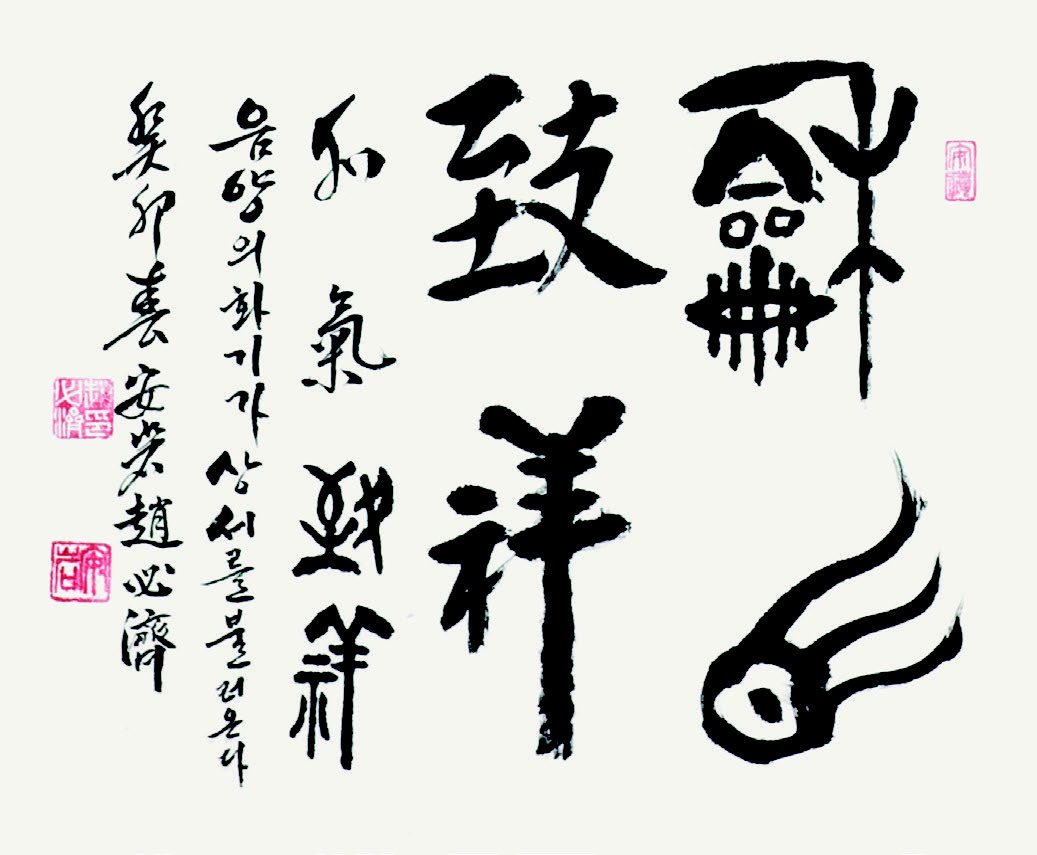 龢氣
致祥
和氣致祥
음양의 화기가 상서를 불러온다
癸卯春 安岩 趙必濟
趙必濟印
安岩